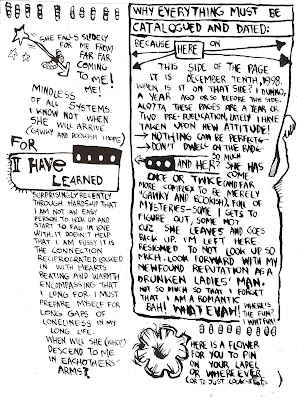 SHE FALLS SLOWLY
FOR ME FROM
FAR FAR
COMING
TO ME!
ME!
MINDLESS
OF ALL SYSTEMS.
I KNOW NOT WHEN
SHE WILL ARRIVE.
(GAWKY AND BOOKISH I HOPE)
FOR
I HAVE
LEARNED
SURPRISINGLY RECENTLY
THROUGH HARDSHIP THAT
I AM NOT AN EASY
PERSON TO HOOK UP AND
START TO FALL IN LOVE
WITH. IT DOESN'T HELP
THAT I AM FUSSY. IT IS
THE CONNECTION
RECIPROCATED LOCKED
IN WITH HEARTS
BEATING AND WARMTH
ENCOMPASSING THAT
I LONG FOR. I MUST
PREPARE MYSELF FOR
LONG GAPS OF
LONELINESS IN MY
LONG LIFE.
WHEN WILL SHE (WHO?)
DESCEND TO ME
IN EACHOTHERS'
ARMS?
WHY EVERYTHING MUST BE
CATALOGUED AND DATED:
BECAUSE HERE ON
THIS SIDE OF THE PAGE
IT IS DECEMBER TENTH, 1998.
WHEN IS IT ON THAT SIDE? I DUNNO,
A YEAR AGO OR SO BEFORE THIS SIDE.
ALOTTA THESE PAGES ARE A YEAR OR
TWO PRE-PUBLICATION. LATELY I HAVE
TAKEN UPON NEW ATTITUDE!
→ NOTHING CAN BE PERFECT ←
→ DON'T DWELL ON THE BAD ←
SO MUCH
AND HER? SHE HAS
ONCE OR TWICE (AND FAR
MORE COMPLEX TO BE MERELY
(GAWKY AND BOOKISH), FULL OF
MYSTERIES – SOME I GETS TO
FIGURE OUT, SOME NOT
CUZ SHE LEAVES AND GOES
BACK UP. I'M LEFT HERE
RESIGNED TO NOT LOOK UP SO
MUCH. LOOK FORWARD WITH MY
NEWFOUND REPUTATION AS A
DRUNKEN LADIES' MAN.
NOT SO MUCH SO THAT I FORGET
THAT I AM A ROMANTIC
BAH! WHAT EVAH! WHERE'S
THE FUN?
WHAT FUN!
HERE IS A FLOWER
FOR YOU TO PIN
ON YOUR LAPEL
OR WHERE EVER
(OR TO JUST LOOK AT)